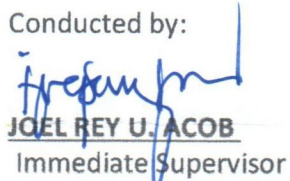 Conducted by:
JOEL REY U. ACOB
Immediate Supervisor